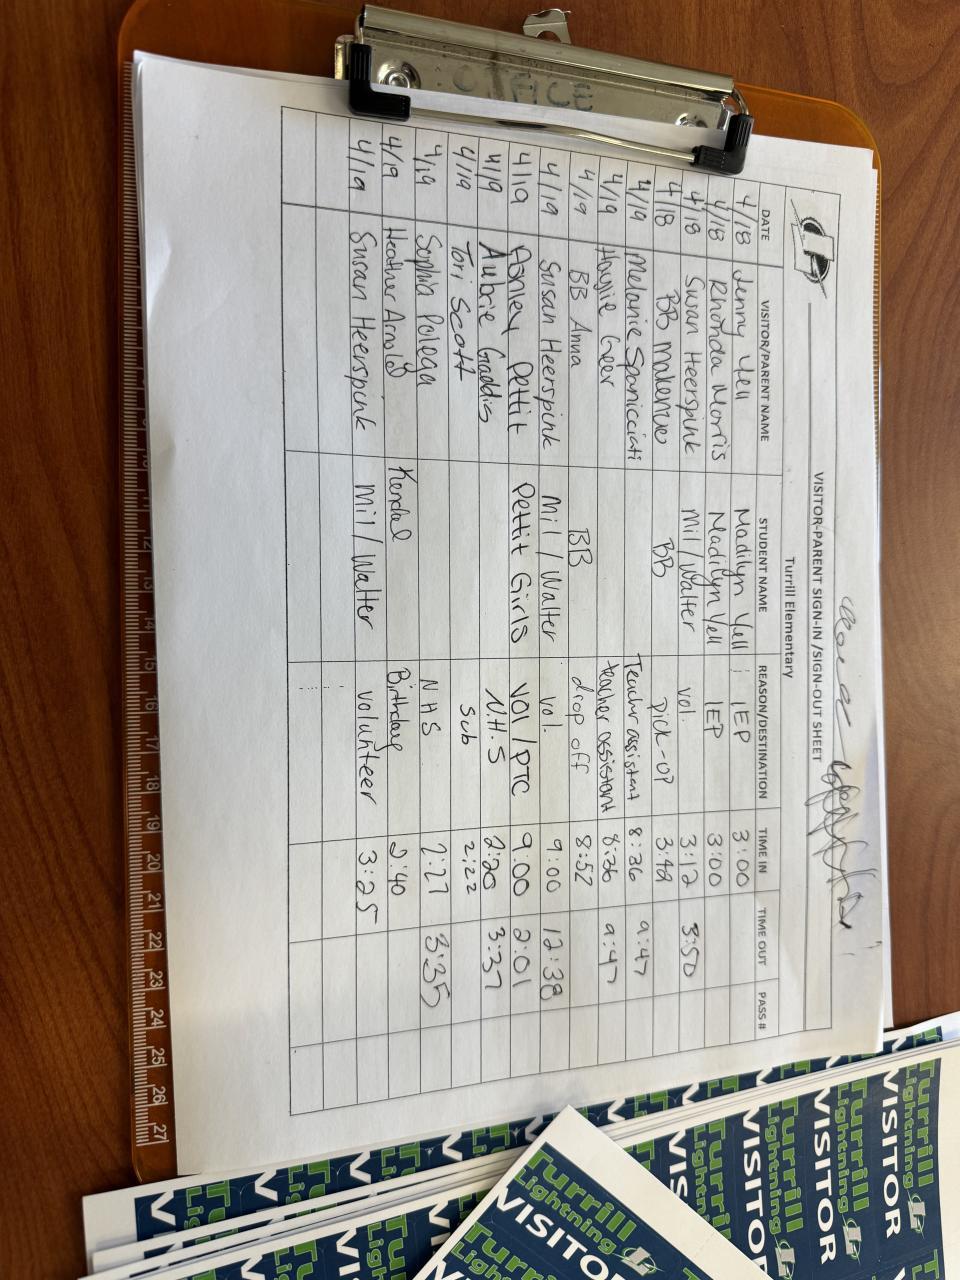 OFFICE
VISITOR-PARENT SIGN-IN /SIGN-OUT SHEET
Turrill Elementary
DATE VISITOR/PARENT NAME STUDENT NAME REASON/DESTINATION TIME IN TIME OUT PASS #
4/18 Jenny Yell Madilyn Yell IEP 3:00
4/18 Rhonda Morris Madilyn Yell IEP 3:00
4/18 Susan Heerspink Mil/Walter vol. 3:12 3:50
4/18 BB Makenze BB pick-up 3:48
4/19 Melanie Spanicciati Teacher assistant 8:36 9:47
4/19 Geer teacher assistant 8:36 9:47
4/19 BB Anna BB drop off 8:52
4/19 Susan Heerspink Mil/Walter vol. 9:00 12:38
4/19 Ashley Pettit Pettit Girls VOl/PTC 9:00 2:01
4/19 Aubrie Gaddis N.H.S 2:20 3:37
4/19 Tori Scott Sub 2:22
4/19 Sophia Polega NHS 2:27 3:35
4/19 Heather Arnold Kendal Birthday 2:40
4/19 Susan Heerspink Mil/Walter volunteer 3:25
12 13 14 15 16 17 18 19 20 21 22 23 24 25 26 27
Turrill
Lightning
VISITOR
Turrill
Lightning
VISITOR
Turrill
Lightning
VISITOR
Turrill
Lightning
VISITOR